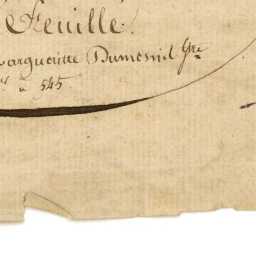 Feuille.
Margueritte Dumesnil Gre
a 545